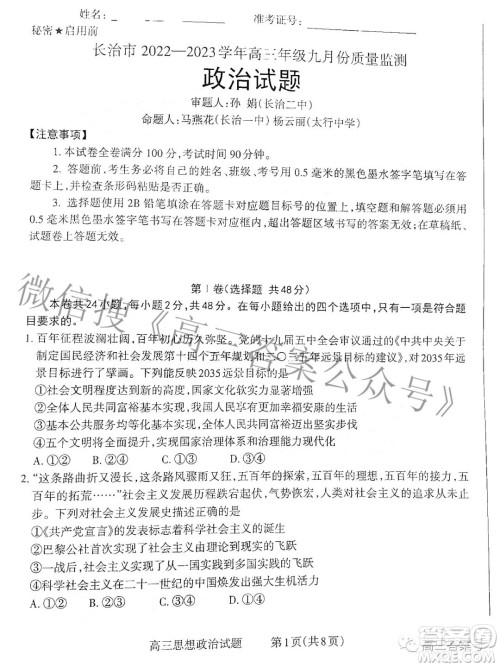 姓名：
准考证号：
秘密★启用前
长治市2022—2023学年高三年级九月份质量监测
政治试题
审题人：孙 娟（长治二中）
命题人：马燕花（长治一中） 杨云丽（太行中学）
【注意事项】
1. 本试卷全卷满分100分，考试时间90分钟。
2. 答题前，考生务必将自己的姓名、班级、考号用0.5毫米的黑色墨水签字笔填写在答
题卡上，并检查条形码粘贴是否正确。
3. 选择题使用2B铅笔填涂在答题卡对应题目标号的位置上，非选择题必须用
0.5毫米黑色墨水签字笔书写在答题卡的对应框内，超出答题区域书写的答案无效；在草稿纸、
试题卷上答题无效。
第Ⅰ卷（选择题 共48分）
本卷共24小题，每小题2分，共48分。在每小题给出的四个选项中，只有一项是符合题
目要求的。
1. 百年征程波澜壮阔，百年初心历久弥坚。党的十九届五中全会审议通过的《中共中央关于
制定国民经济和社会发展第十四个五年规划和二〇三五年远景目标的建议》，对2035年远
景目标进行了擘画。下列能反映2035远景目标的是
①社会文明程度达到新的高度，国家文化软实力显著增强
②全体人民共同富裕基本实现，我国人民将享有更加幸福安康的生活
③基本公共服务均等化实现，全体人民共同富裕迈出坚实步伐
④五大文明全面提升，实现国家治理体系和治理能力现代化
A.①② B.①③ C.②④ D.③④
2. “这条路曲折又漫长，这条路风骤雨又狂，五百年的求索，五百年的信仰，五百年的开创，五
百年的拓荒……”这首歌展现了社会主义五百年历程跌宕起伏，气势恢宏，关于社会主义的
追求从未停步。下列关于社会主义发展史描述正确的是
①《共产党宣言》的发表标志着科学社会主义的诞生
②巴黎公社实现了社会主义由理论到现实的飞跃
③十月革命实现了社会主义由空想到科学的飞跃
④科学社会主义在二十一世纪的中国焕发出强大生机活力
A.①② B.①④ C.②③ D.③④
高三思想政治试题 第1页（共8页）
微信搜《高三答案公众号》